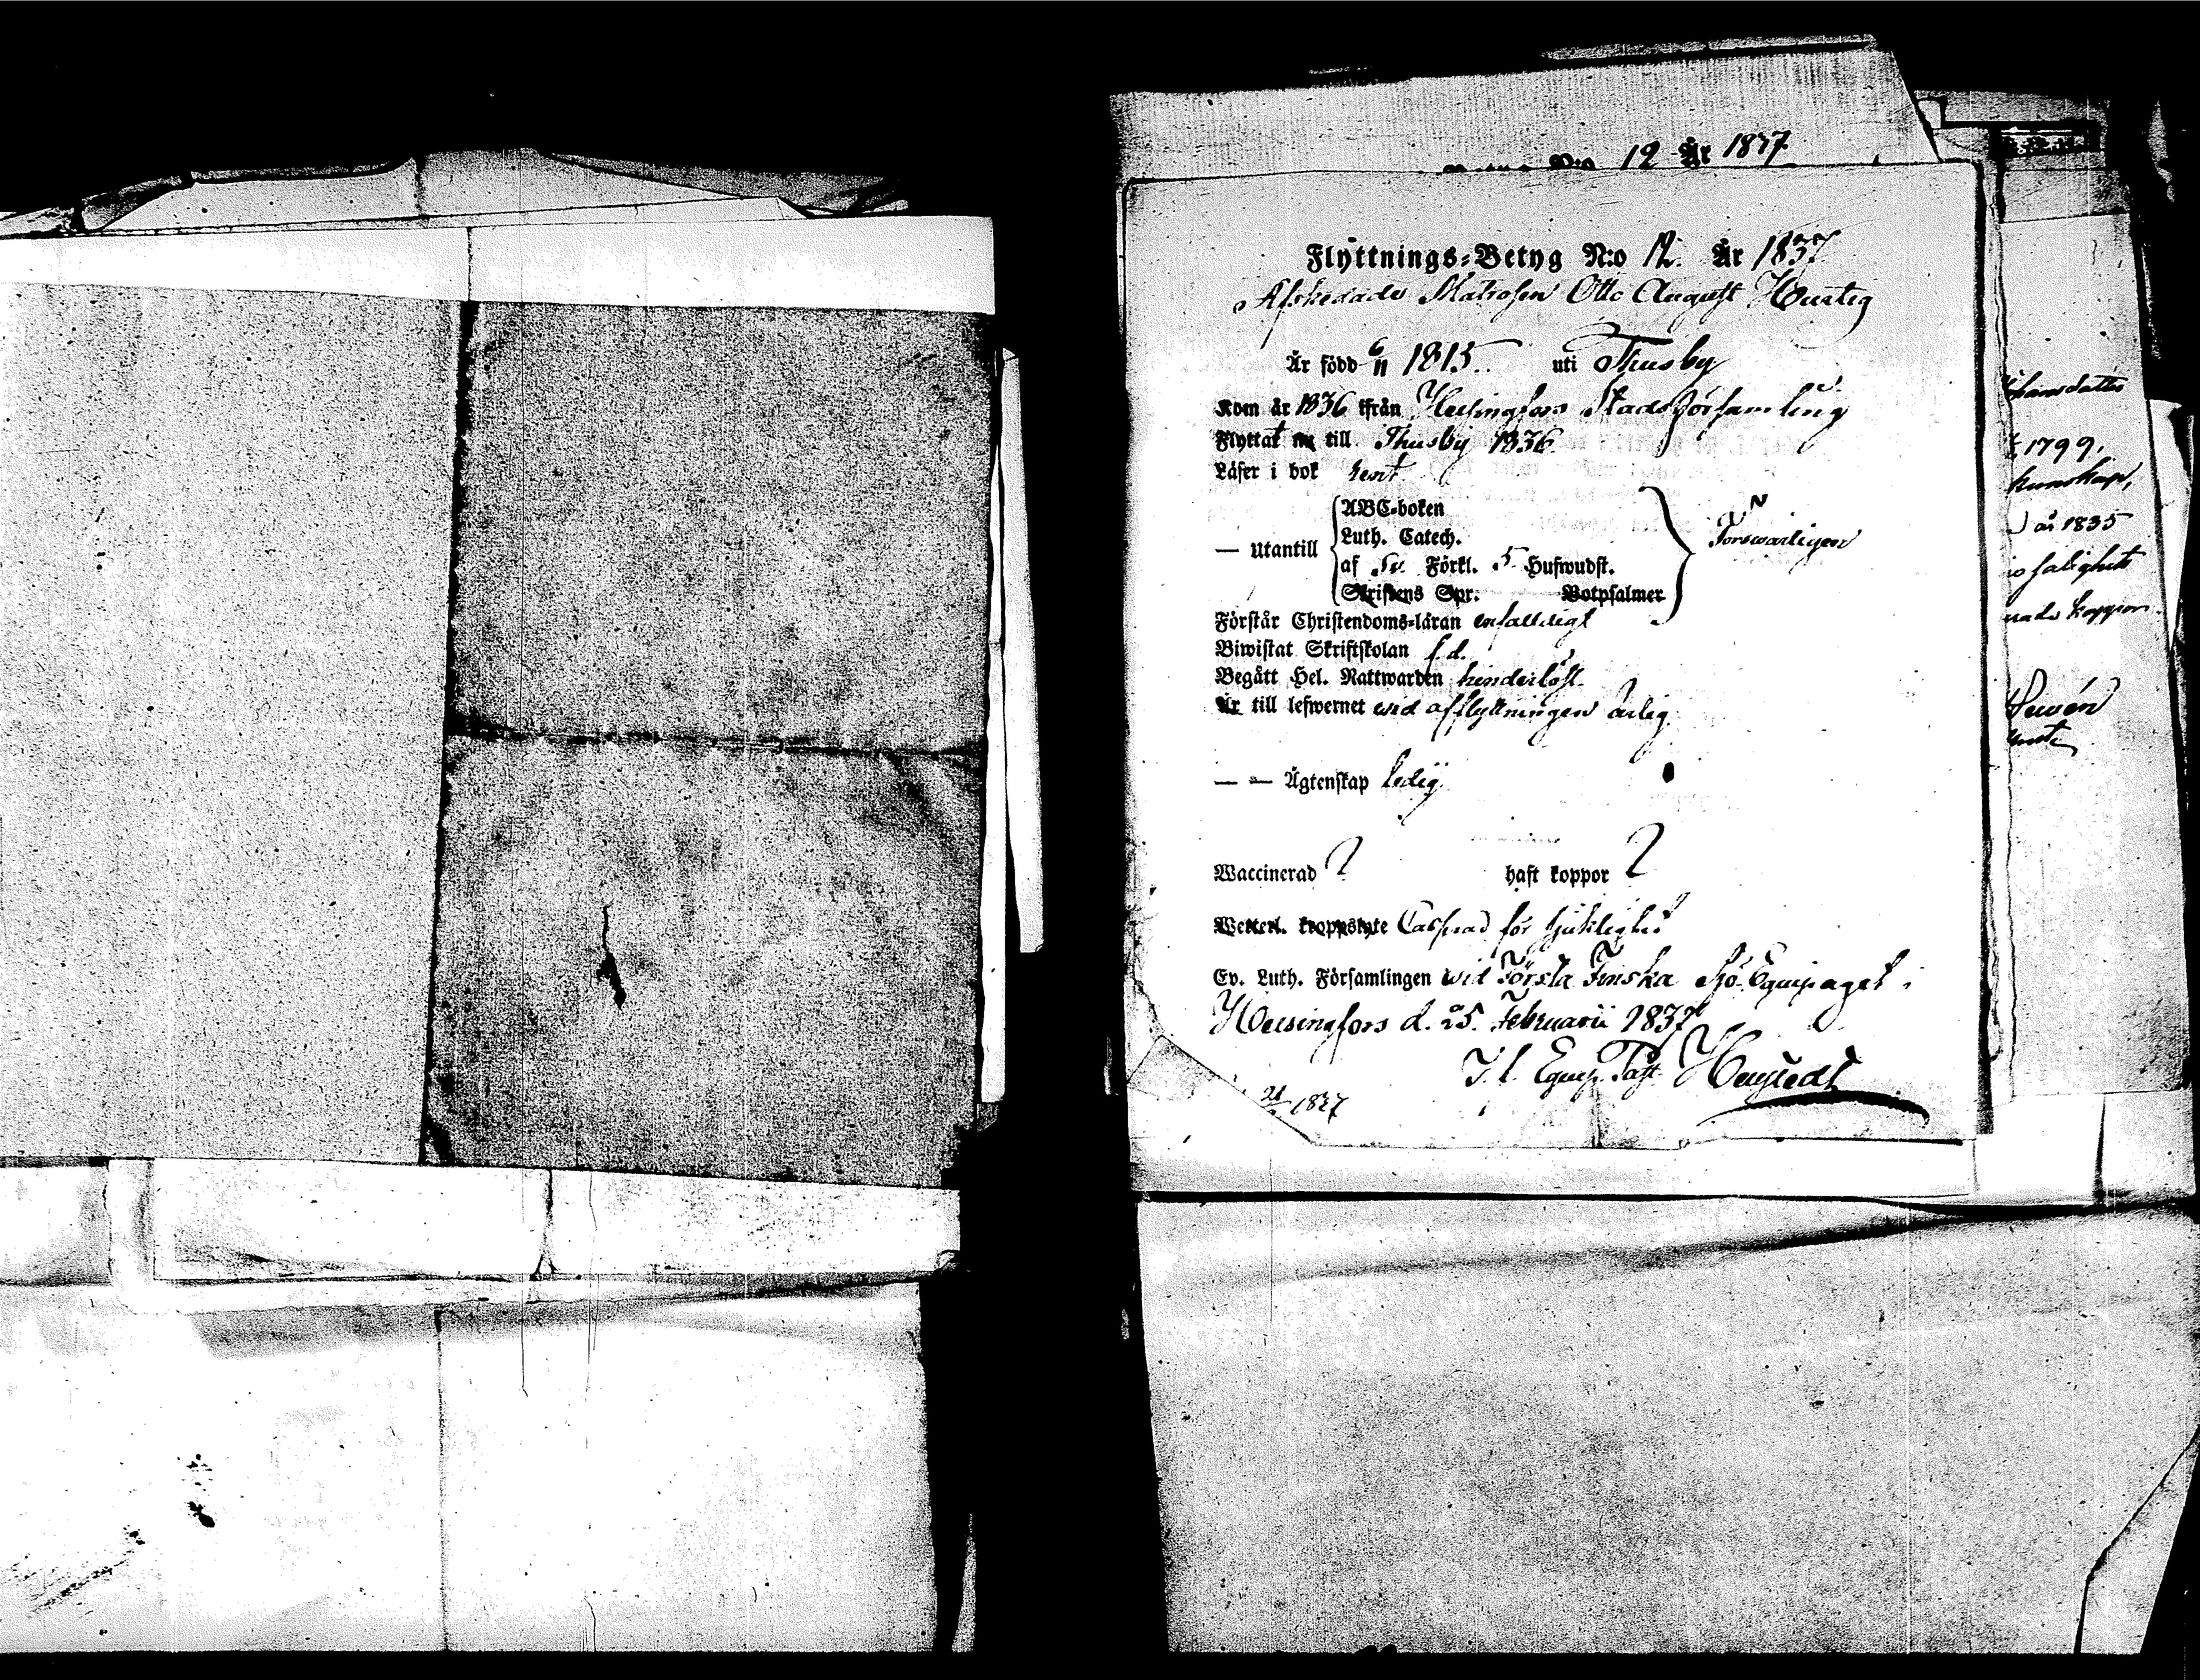 N:o 12 År 1837
Flyttnings-Betyg N:o 12. År 1837
Afskedade Matrosen Otto August Hurtig
Är född 6/11 1815. uti Thusby
Kom år 1836 ifrån Helsingfors Stadsförsamling
Flyttat nu till Thusby 1836
Läser i bok
— Utantill
ABC-boken
Luth. Catech.
af Sv. Förkl. 5 Hufwudst.
Skriftens Spr. Botpsalmer
Förswarligen
Förstår Christendoms-läran enfaldigt
Biwistat Skriftskolan f. d.
Begått Hel. Nattwarden hinderlöst.
Är till lefwernet wid afflyttningen ärlig.
— — Ägtenskap ledig
Waccinerad ? haft koppor ?
Wetterl. kroppslyte Casserad för sjuklighet
Ev. Luth. Församlingen wid Första Finska Sjö-Equipaget i
Helsingfors d. 25. Februarii 1837
Equip. Past.
1837
1799.
kunskap,
år 1835
salighets
koppor.